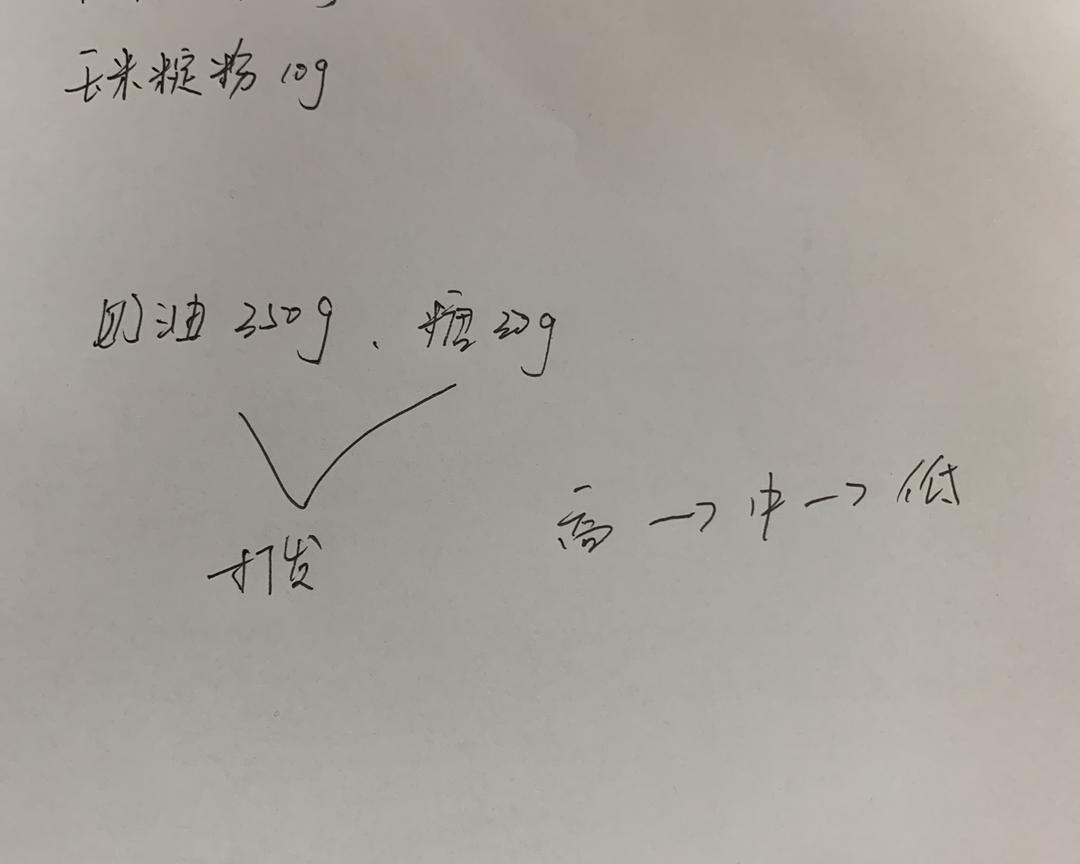 玉米腚粉 10g
奶油 250g、糖 20g
打发
高 → 中 → 低